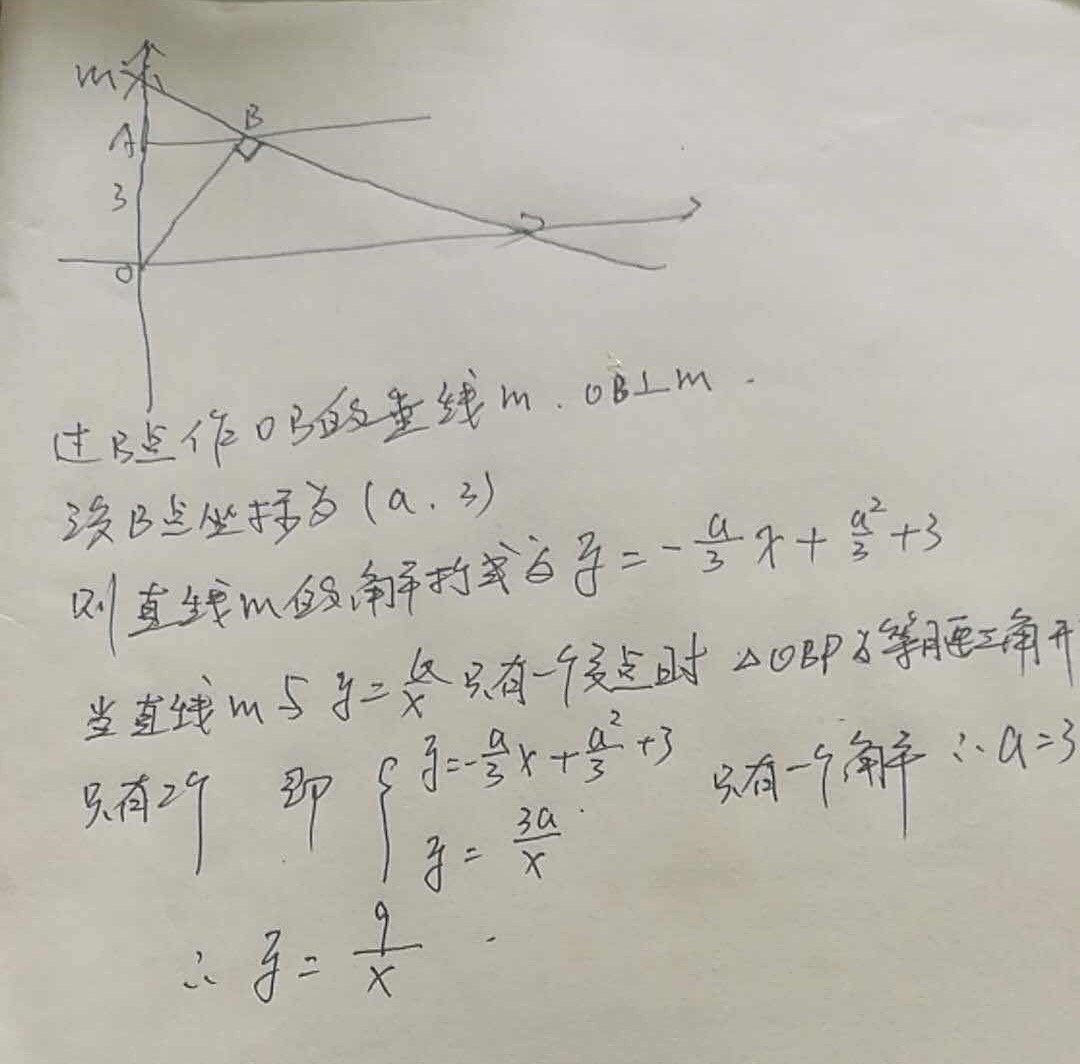 m
A
B
3
O
过B点作OB的垂线m.OB⊥m.
设B点坐标为(a.3)
则直线m的解析式为y=-a/3 x+a²/3+3
当直线m与y=k/x只有一个交点时△OBP为等腰三角形
只有2个 即 { y=-a/3 x+a²/3+3 只有一个解∴a=3
y=3a/x
∴y=9/x